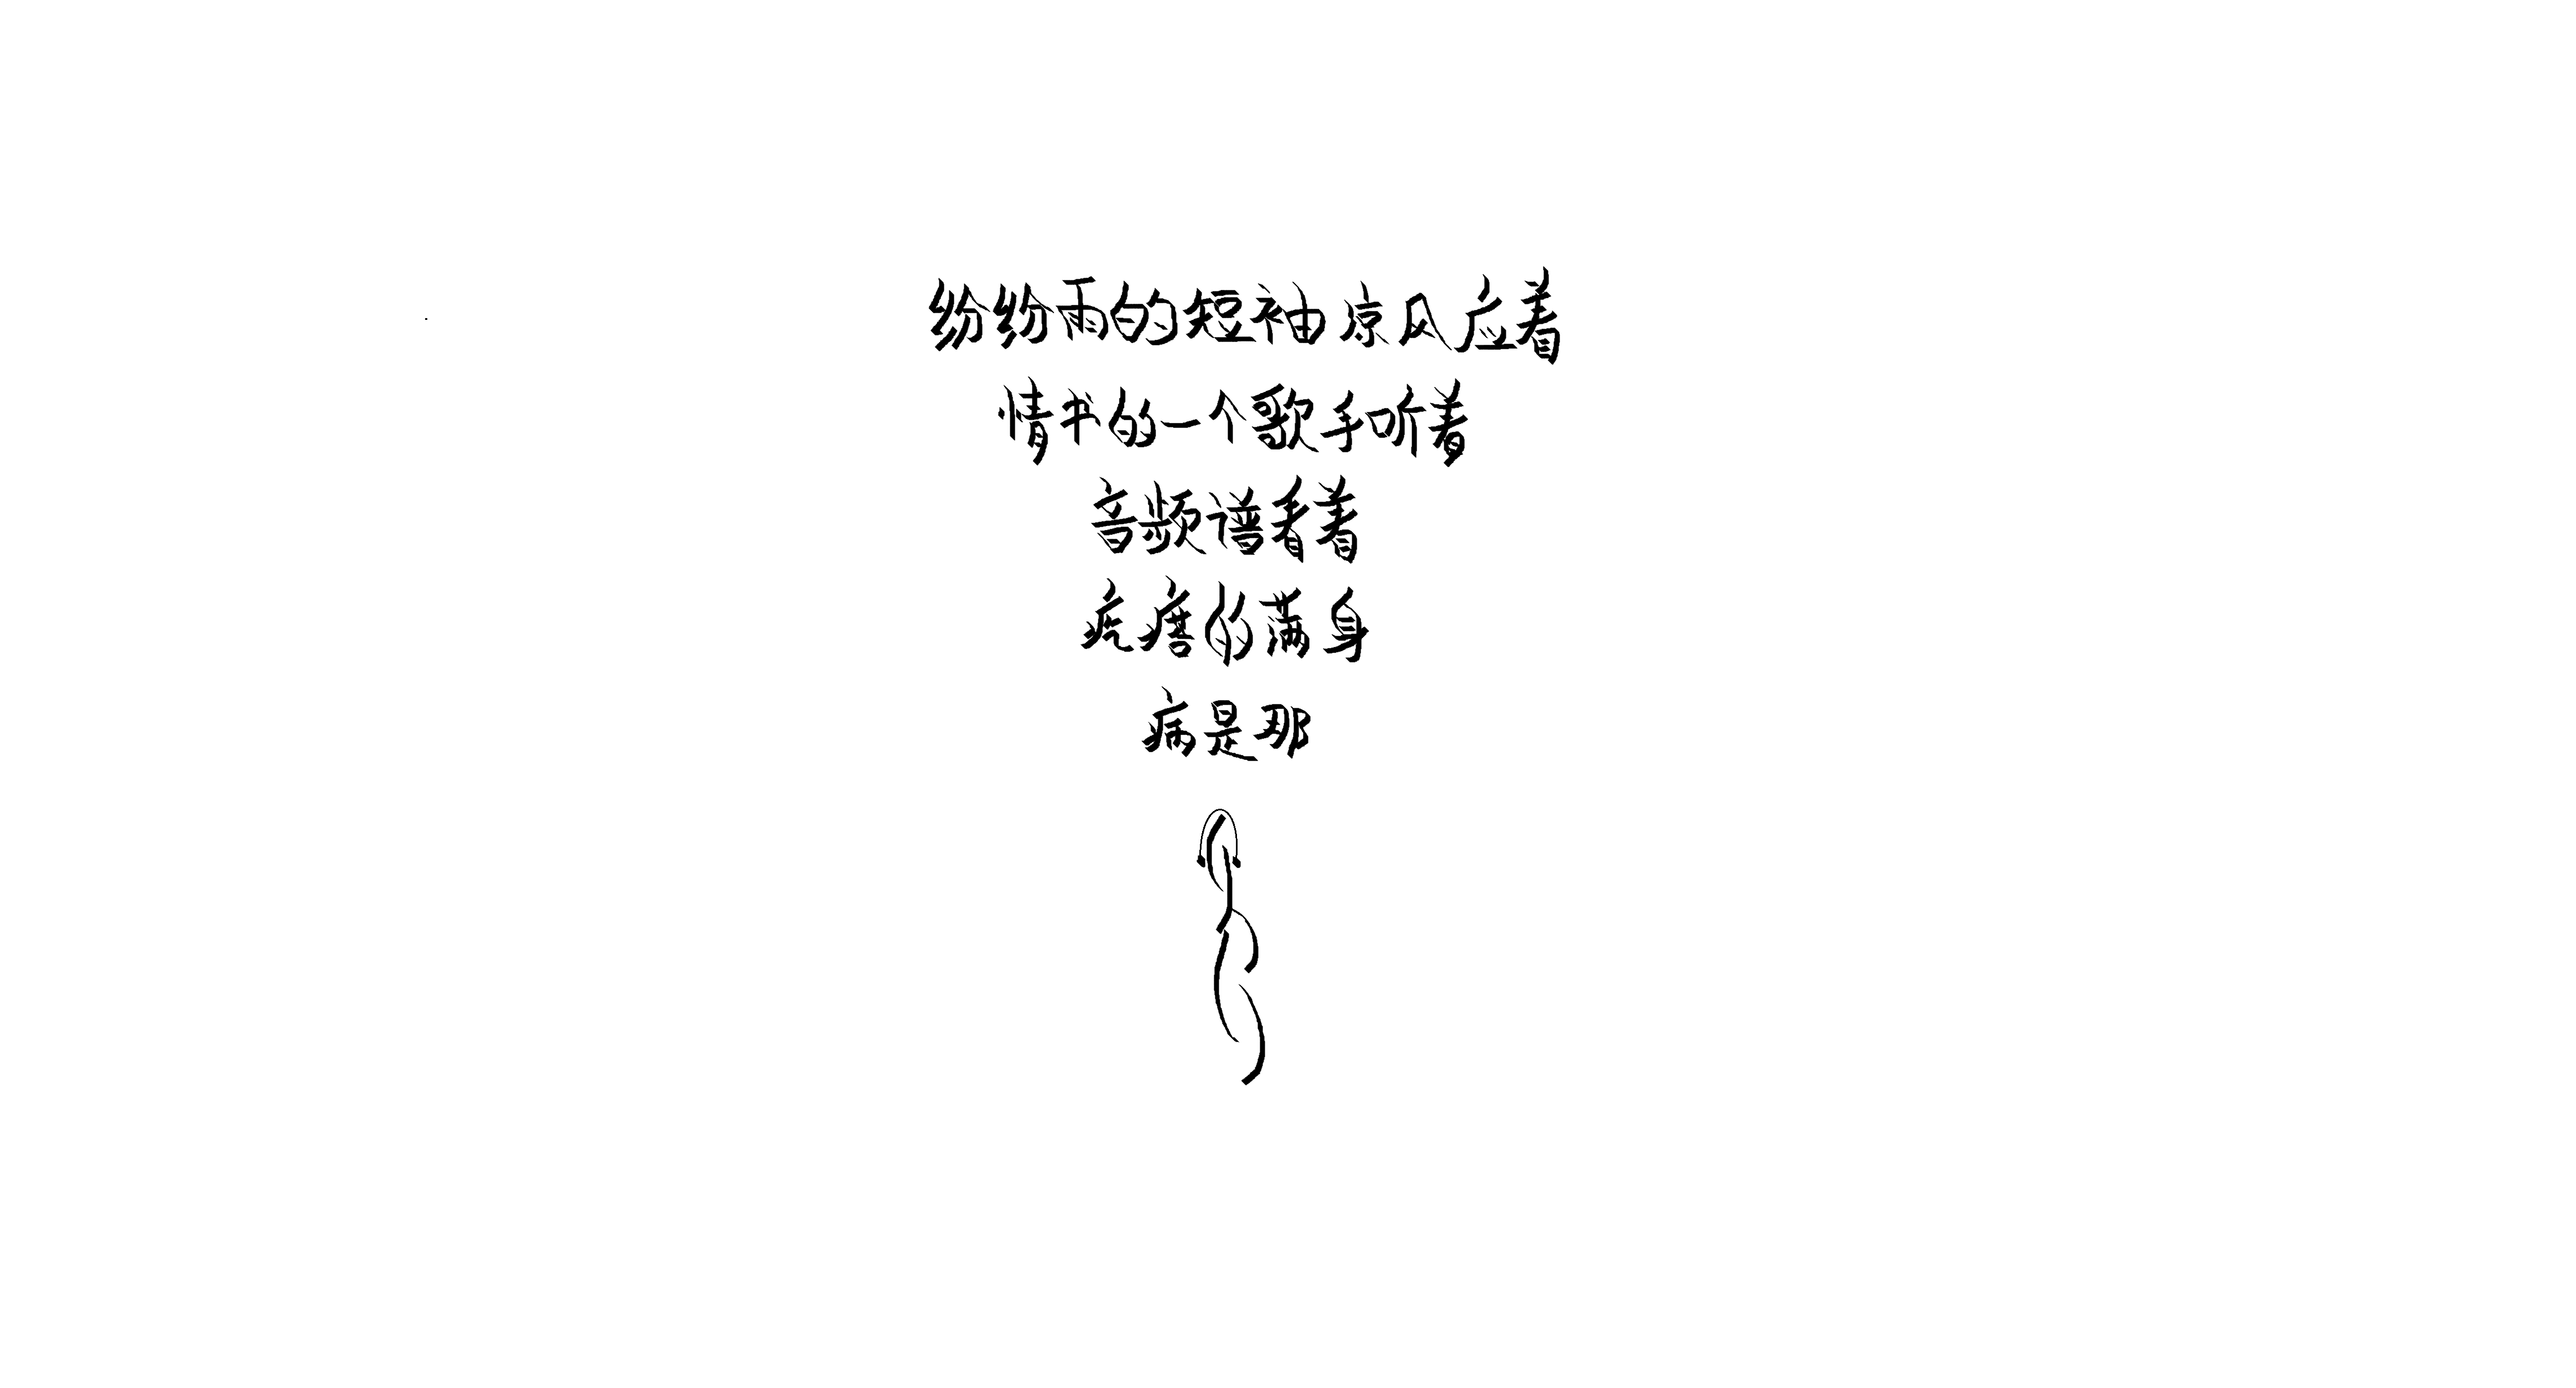 纷纷雨的短袖凉风应着
情书的一个歌手听着
音频谱看着
疙瘩的满身
病是那